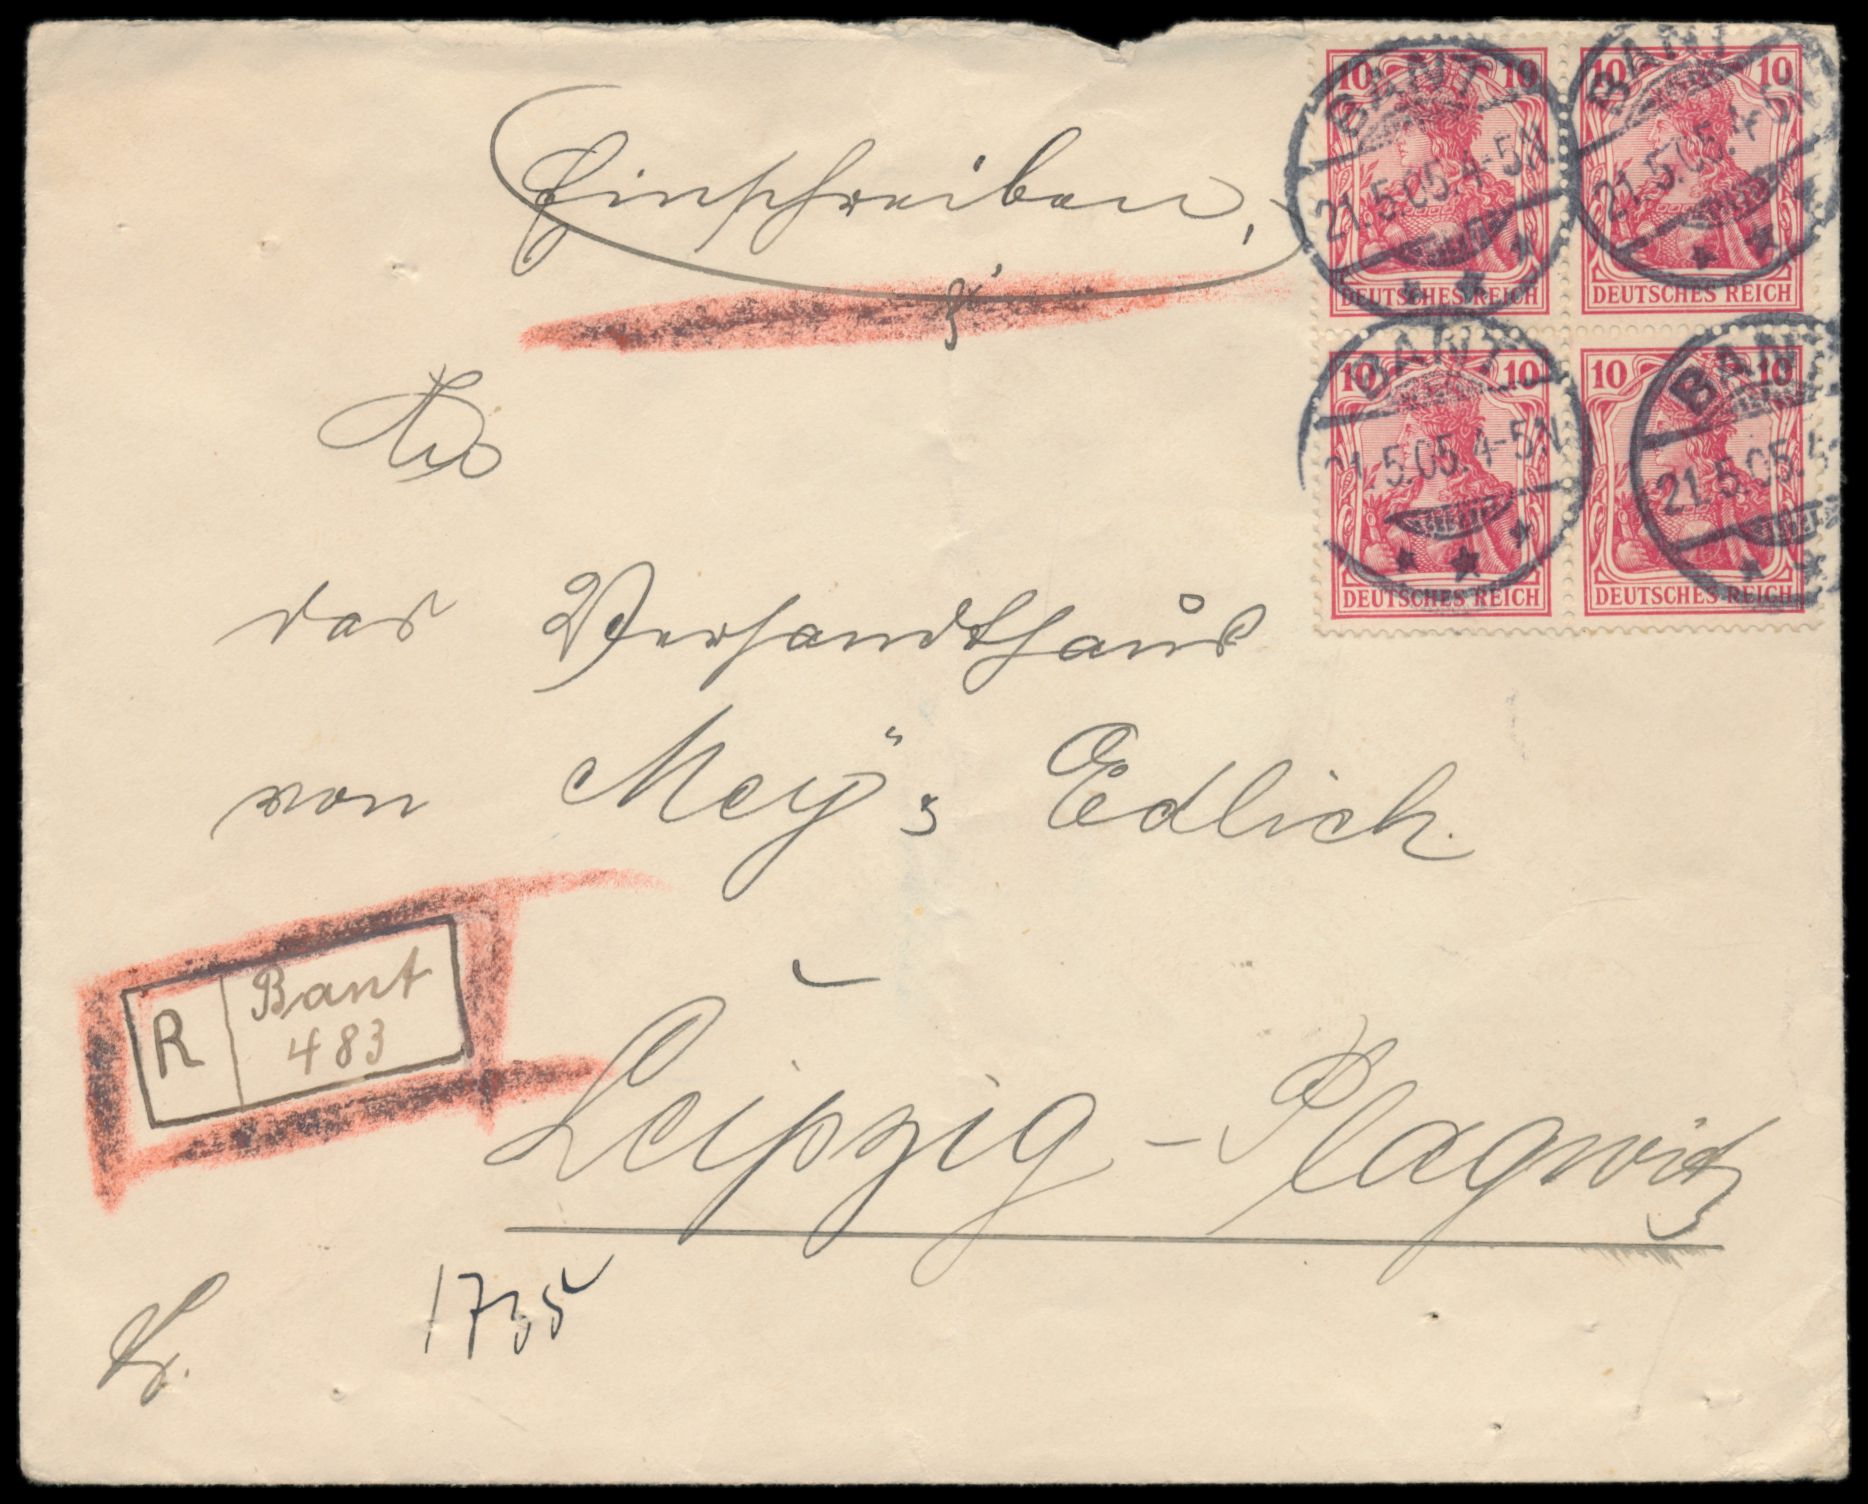 Einschreiben,
10 10 10 10
DEUTSCHES REICH DEUTSCHES REICH
BANT
21.5.05.4-5N
BANT
21.5.05.4-5N
10 10 10 10
DEUTSCHES REICH DEUTSCHES REICH
BANT
21.5.05.4-5N
BANT
21.5.05.5
An
das Versandthaus
von Mey & Edlich.
R Bant
483
Leipzig - Plagwitz
1735